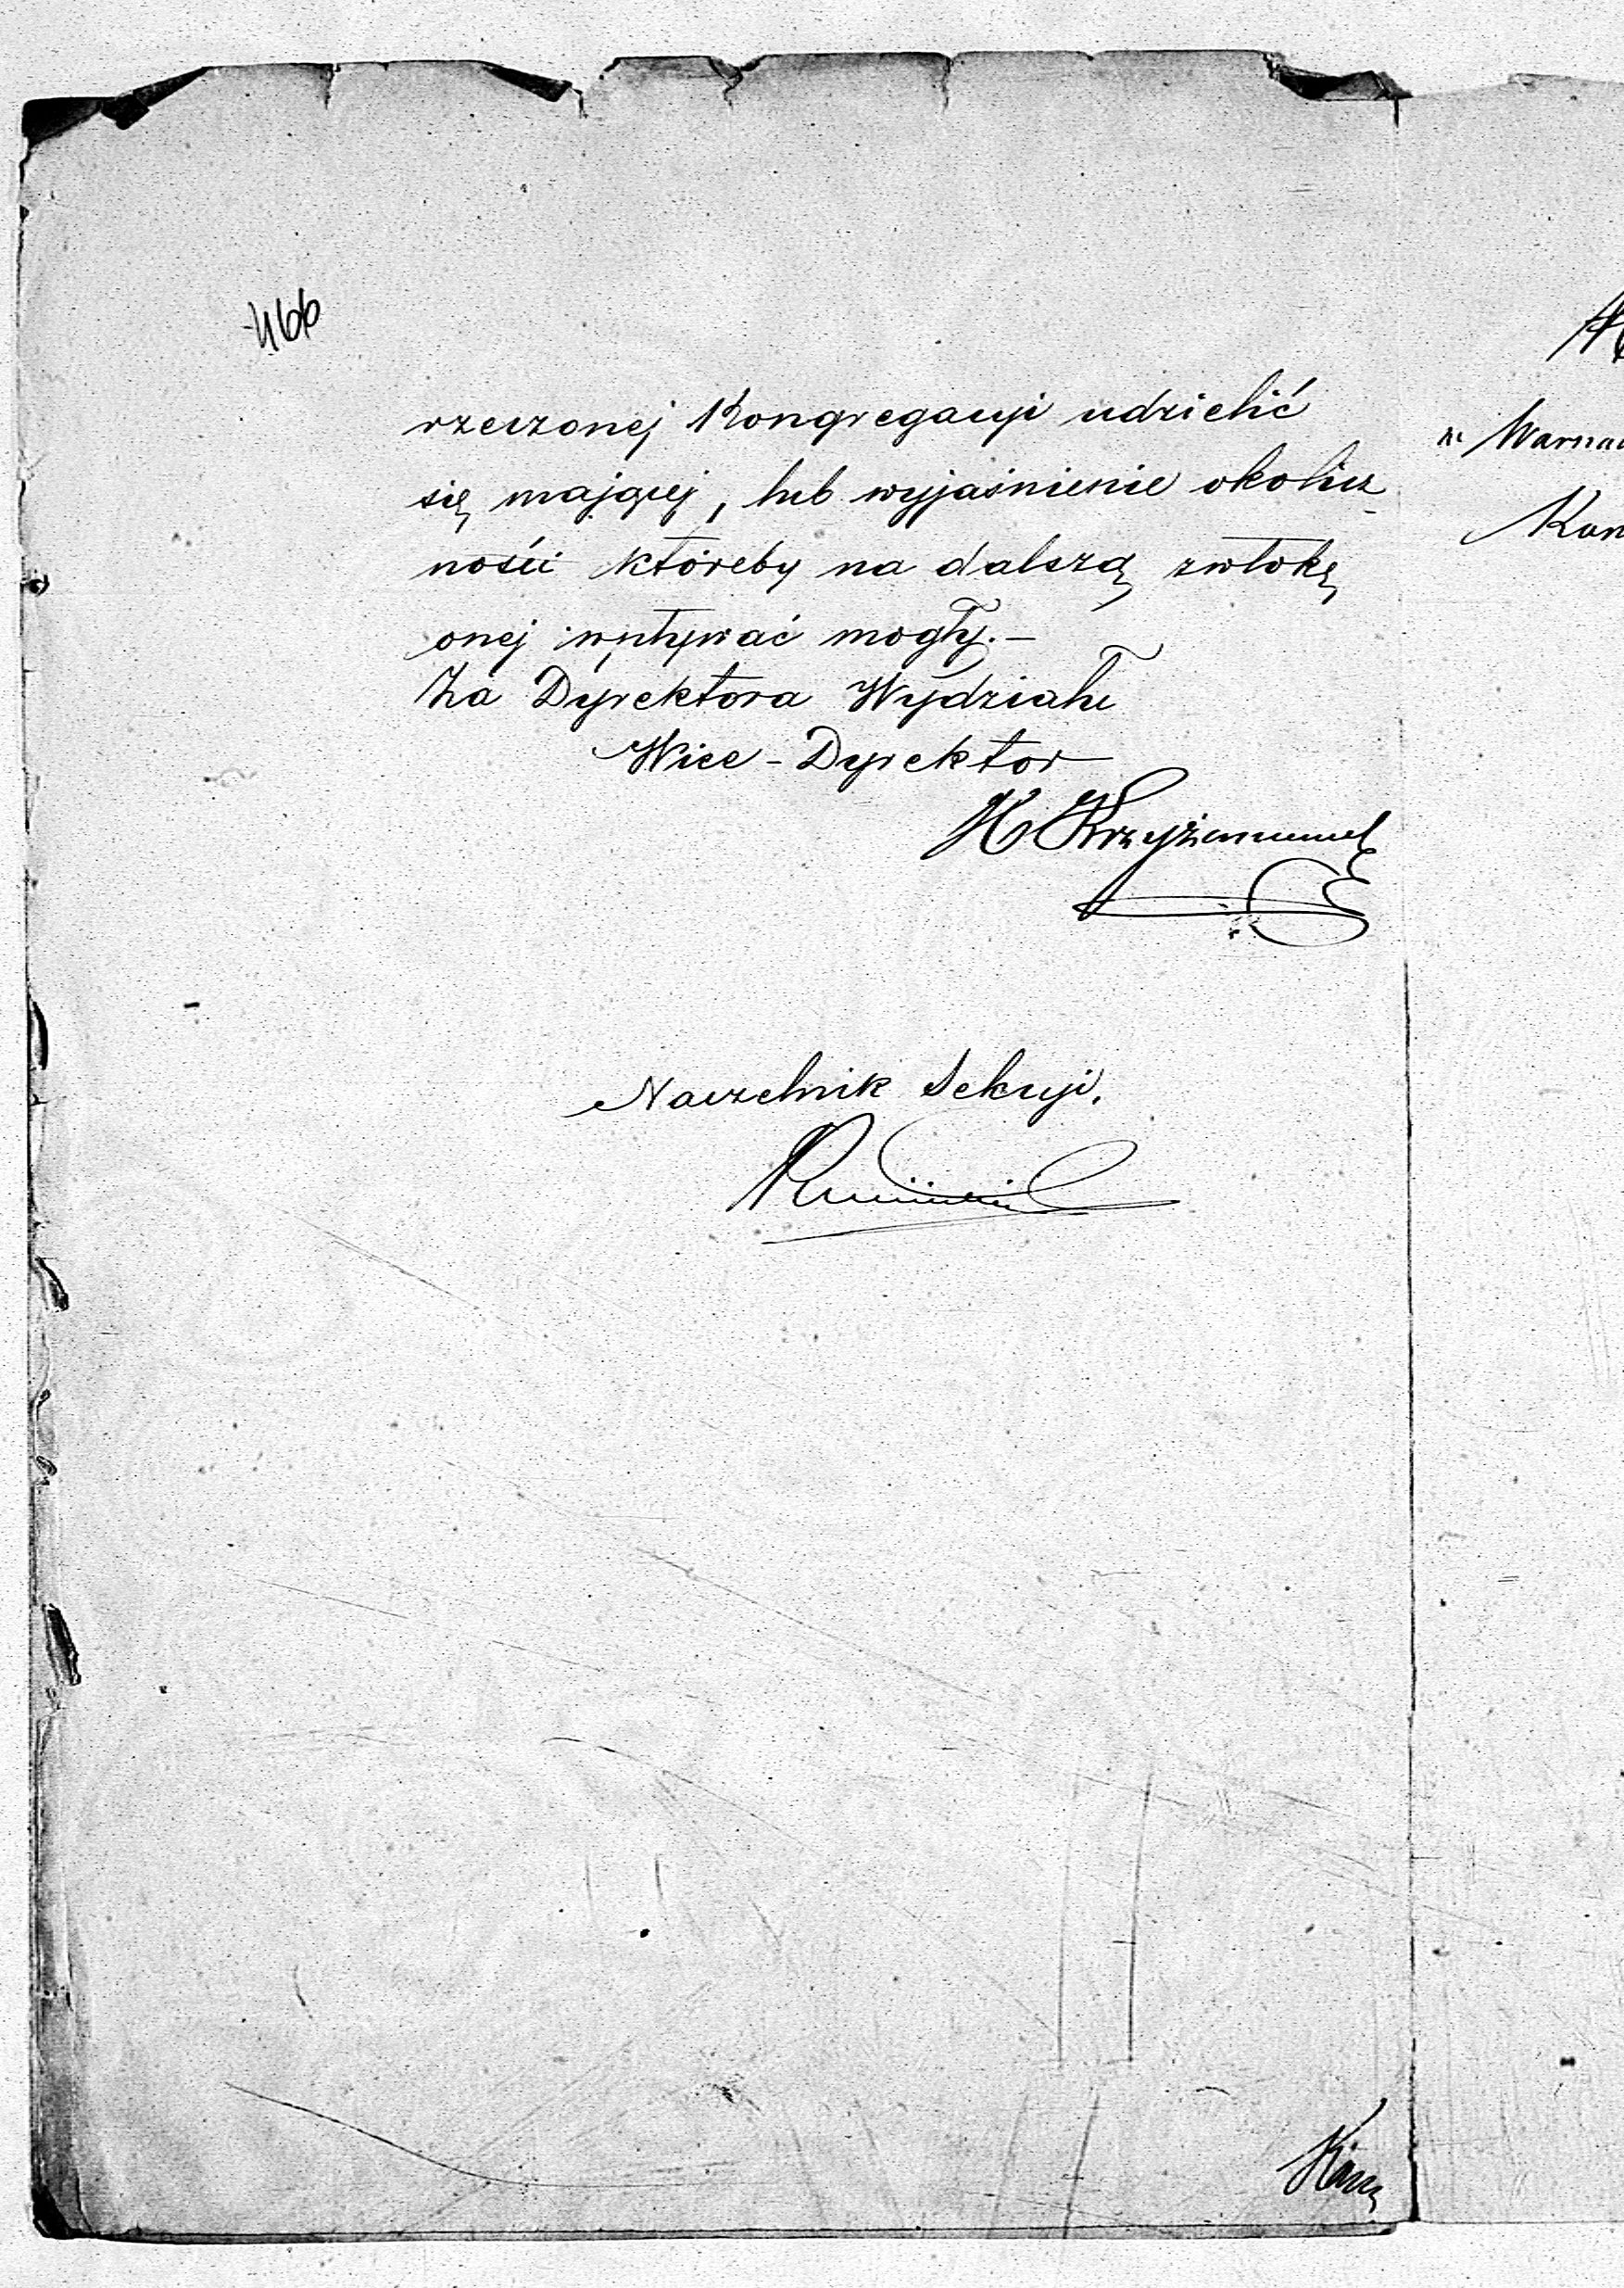 466
rzeczonej Kongregacyi udzielić
się mającej, lub wyjaśnienie okolicz-
ności któreby na dalszą zwłokę
onej wpływać mogły.—
Za Dyrektora Wydziału
Wice-Dyrektor
Naczelnik Sekcyi.